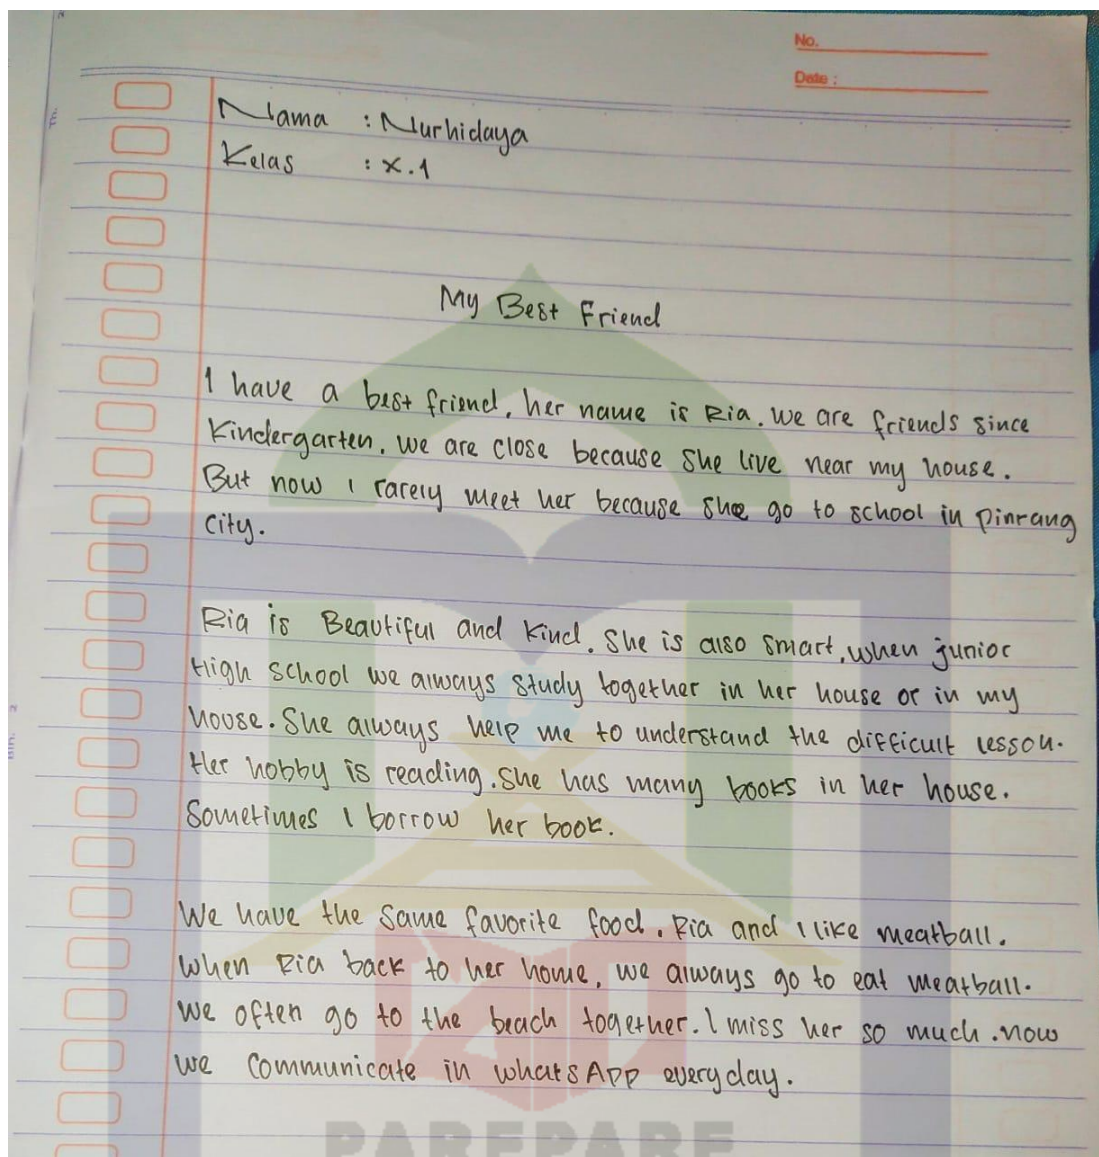 No.
Date :
Nama : Nurhidaya
Kelas : X.1
My Best Friend
I have a best friend, her name is Ria. We are friends since
Kindergarten. We are close because she live near my house.
But now I rarely meet her because she go to school in pinrang
city.
Ria is Beautiful and Kind. She is also smart. when junior
High school we always study together in her house or in my
house. She always help me to understand the difficult lesson.
Her hobby is reading. She has many books in her house.
Sometimes I borrow her book.
We have the same favorite food. Ria and I like meatball.
When Ria back to her home, we always go to eat meatball.
We often go to the beach together. I miss her so much. now
we communicate in whatsApp everyday.
PAREPARE